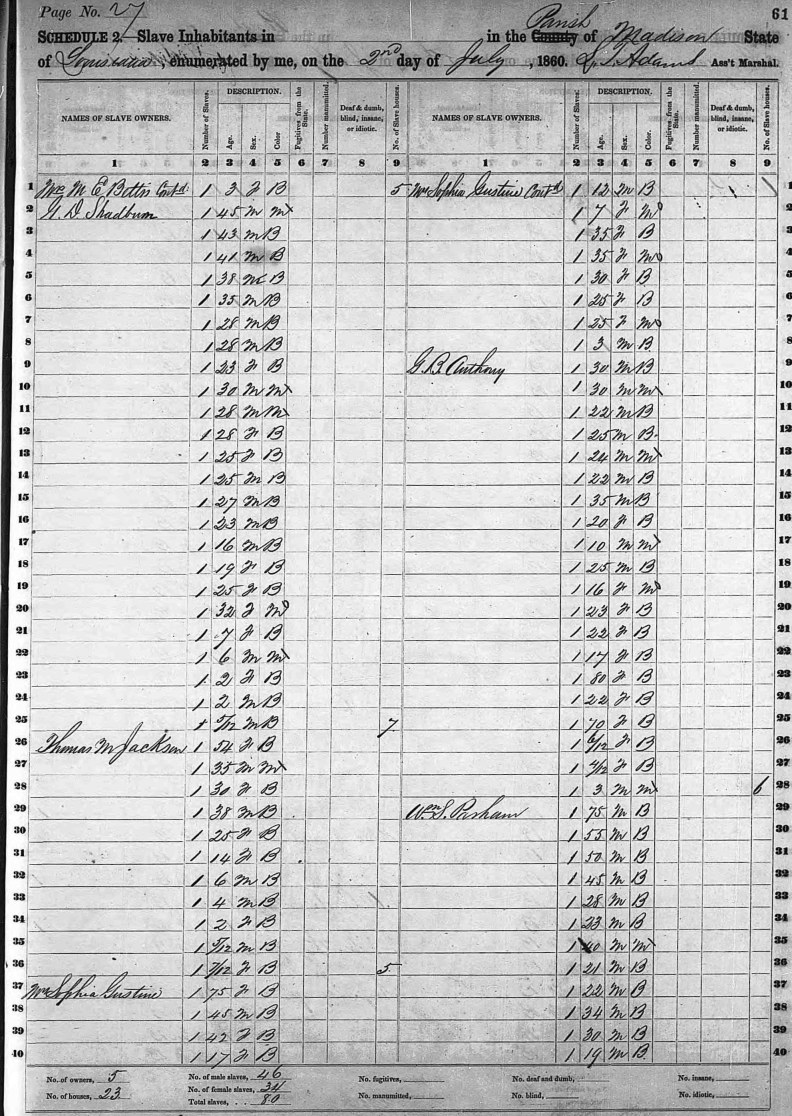 Page No. 27
61
SCHEDULE 2.—Slave Inhabitants in in the County Parish of Madison State
of Louisiana, enumerated by me, on the 2nd day of July, 1860. Adams Ass't Marshal.
NAMES OF SLAVE OWNERS. Number of Slaves. DESCRIPTION. Age. Sex. Color Fugitives from the State. Number manumitted. Deaf & dumb, blind, insane, or idiotic. No. of Slave houses. NAMES OF SLAVE OWNERS. Number of Slaves. DESCRIPTION. Age. Sex. Color. Fugitives from the State. Number manumitted. Deaf & dumb, blind, insane, or idiotic. No. of Slave houses.
1 2 3 4 5 6 7 8 9 1 2 3 4 5 6 7 8 9
1 M E Bettis Cont'd 1 3 F B 5 Mrs Sophia Gustine Cont'd 1 12 M B 1 1
2 Shadburn 1 45 M M 1 7 F M 2
3 1 43 M B 1 35 F B 3
4 1 41 M B 1 35 F M 4
5 1 38 M B 1 30 F B 5
6 1 35 M B 1 25 F B 6
7 1 28 M B 1 25 F M 7
8 1 28 M B 1 3 M B 8
9 1 23 F B G. B. Anthony 1 30 M B 9
10 1 30 M M 1 30 M M 10
11 1 28 M M 1 22 M B 11
12 1 28 F B 1 25 M B 12
13 1 25 F B 1 24 M M 13
14 1 25 M B 1 22 M B 14
15 1 27 M B 1 35 M B 15
16 1 23 M B 1 20 F B 16
17 1 16 M B 1 10 M M 17
18 1 19 F B 1 25 M B 18
19 1 25 F B 1 16 F M 19
20 1 32 F M 1 23 F B 20
21 1 7 F B 1 22 F B 21
22 1 6 M M 1 17 F B 22
23 1 2 F B 1 80 F B 23
24 1 2 M B 1 22 F B 24
25 1 5/12 M B 7 1 70 F B 25
26 Thomas M Jackson 1 54 F B 1 6/12 F B 26
27 1 35 M M 1 4/12 F B 27
28 1 30 F B 1 3 M M 6 28
29 1 38 M B Wm S. Parham 1 75 M B 29
30 1 25 F B 1 55 M B 30
31 1 14 F B 1 50 M B 31
32 1 6 M B 1 45 M B 32
33 1 4 M B 1 28 M B 33
34 1 2 F B 1 23 M B 34
35 1 5/12 M B 1 40 M M 35
36 1 7/12 F B 5 1 21 M B 36
37 Mrs Sophia Gustine 1 75 F B 1 22 M B 37
38 1 45 M B 1 34 M B 38
39 1 42 F B 1 30 M B 39
40 1 17 F B 1 19 M B 40
No. of owners, 5 No. of male slaves, 46 No. fugitives, No. deaf and dumb, No. insane,
No. of houses, 23 No. of female slaves, 34 No. manumitted, No. blind, No. idiotic,
Total slaves, 80